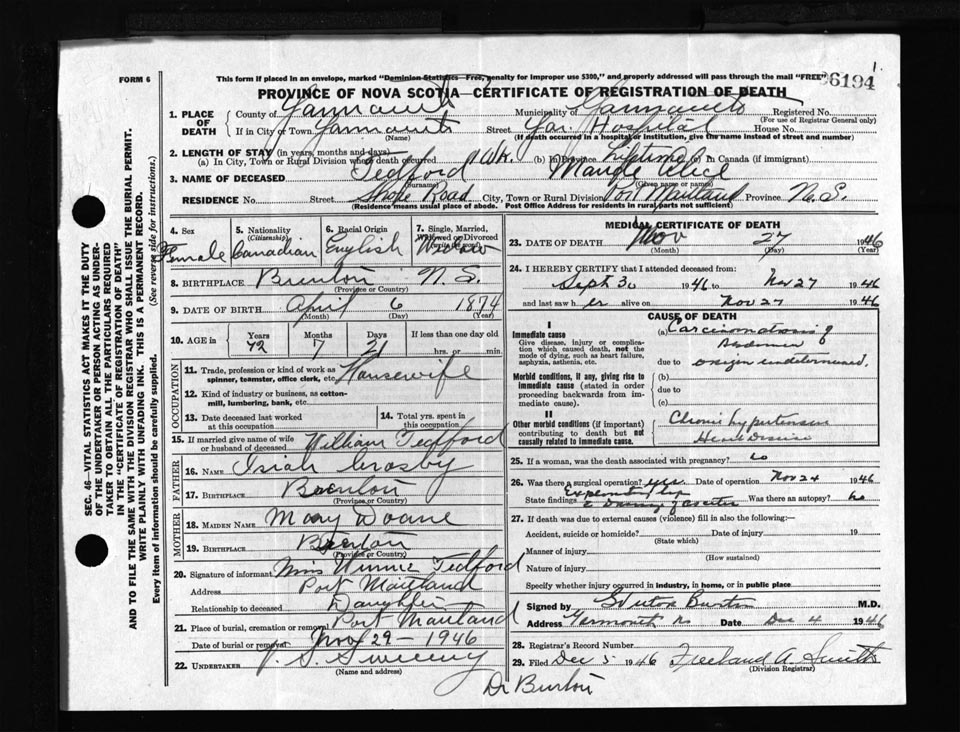 FORM 6
This form if placed in an envelope, marked "Dominion Statistics—Free, penalty for improper use $300," and properly addressed will pass through the mail "FREE"
6194
PROVINCE OF NOVA SCOTIA—CERTIFICATE OF REGISTRATION OF DEATH
SEC. 46—VITAL STATISTICS ACT MAKES IT THE DUTY
OF THE UNDERTAKER OR PERSON ACTING AS UNDER-
TAKER TO OBTAIN ALL THE PARTICULARS REQUIRED
IN THE "CERTIFICATE OF REGISTRATION OF DEATH"
AND TO FILE THE SAME WITH THE DIVISION REGISTRAR WHO SHALL ISSUE THE BURIAL PERMIT.
WRITE PLAINLY WITH UNFADING INK. THIS IS A PERMANENT RECORD.
Every item of information should be carefully supplied. (See reverse side for instructions.)
1. PLACE OF DEATH
County of Yarmouth Municipality of Yarmouth Registered No.
(For use of Registrar General only)
If in City or Town Yarmouth Street Yar. Hospital House No.
(Name) (If death occurred in a hospital or institution, give the name instead of street and number)
2. LENGTH OF STAY (in years, months and days)
(a) In City, Town or Rural Division where death occurred 1 Wk. (b) In Province Lifetime (c) In Canada (if immigrant)
3. NAME OF DECEASED Tedford Maude Alice
(Surname) (Given name or names)
RESIDENCE No. Street Shore Road City, Town or Rural Division Port Maitland Province N.S.
(Residence means usual place of abode. Post Office Address for residents in rural parts not sufficient)
4. Sex Female
5. Nationality (Citizenship) Canadian
6. Racial Origin English
7. Single, Married, Widowed or Divorced (Write the word) Widow
8. BIRTHPLACE Brenton N.S.
(Province or Country)
9. DATE OF BIRTH April 6 1874
(Month) (Day) (Year)
10. AGE in Years 72 Months 7 Days 21 If less than one day old hrs. or min.
OCCUPATION
11. Trade, profession or kind of work as spinner, teamster, office clerk, etc. Housewife
12. Kind of industry or business, as cotton-mill, lumbering, bank, etc.
13. Date deceased last worked at this occupation
14. Total yrs. spent in this occupation
15. If married give name of wife or husband of deceased William Tedford
FATHER
16. NAME Isiah Crosby
17. BIRTHPLACE Brenton
(Province or Country)
MOTHER
18. MAIDEN NAME Mary Doane
19. BIRTHPLACE Brenton
(Province or Country)
20. Signature of informant Miss Winnie Tedford
Address Port Maitland
Relationship to deceased Daughter
21. Place of burial, cremation or removal Port Maitland
Date of burial or removal Nov 29 — 1946
22. UNDERTAKER V. S. Sweeny
(Name and address)
MEDICAL CERTIFICATE OF DEATH
23. DATE OF DEATH Nov 27 1946
(Month) (Day)
24. I HEREBY CERTIFY that I attended deceased from:
Sept 30 1946 to Nov 27 1946
and last saw h er alive on Nov 27 1946
CAUSE OF DEATH
I
Immediate cause (a) Carcinomatosis of
Give disease, injury or complication which caused death, not the mode of dying, such as heart failure, asphyxia, asthenia, etc.
Abdomen
due to origin undetermined.
Morbid conditions, if any, giving rise to immediate cause (stated in order proceeding backwards from immediate cause).
(b)
due to
(c)
II
Other morbid conditions (if important) contributing to death but not causally related to immediate cause.
Chronic hypertensive
Heart Disease
25. If a woman, was the death associated with pregnancy? no
26. Was there a surgical operation? yes Date of operation Nov 24 1946
State findings Exploratory Lap
Was there an autopsy? no
27. If death was due to external causes (violence) fill in also the following:—
Accident, suicide or homicide? Date of injury 19
(State which)
Manner of injury
(How sustained)
Nature of injury
Specify whether injury occurred in industry, in home, or in public place
Signed by Burton M.D.
Address Yarmouth NS Date Dec 4 1946
28. Registrar's Record Number
29. Filed Dec 5 1946 Freeland A. Smith
(Division Registrar)
Dr Burton